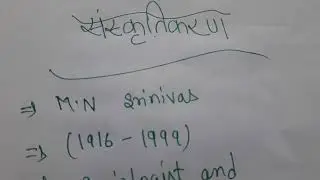 संस्कृतिकरण
⇒ M.N Srinivas
⇒ (1916 - 1999)
Sociologist and